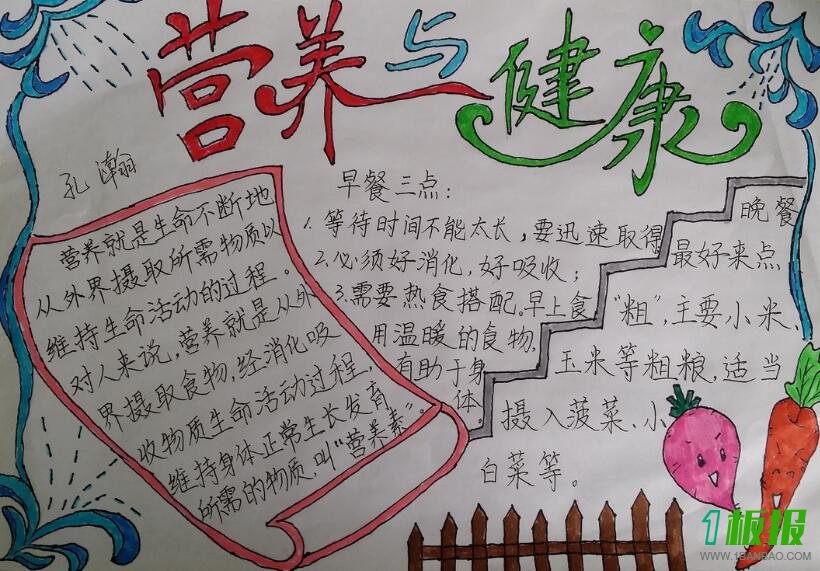 营养与健康
孔瀚
营养就是生命不断地
从外界摄取所需物质以
维持生命活动的过程。
对人来说，营养就是从外
界摄取食物，经消化吸
收物质生命活动过程，
维持身体正常生长发育
所需的物质，叫“营养素”。
早餐三点：
1. 等待时间不能太长，要迅速取得
2. 必须好消化，好吸收；
3. 需要热食搭配。早上食
用温暖的食物，
有助于身
体
晚餐
最好来点
“粗”，主要小米、
玉米等粗粮，适当
摄入菠菜、小
白菜等。
1板报
WWW.1BANBAO.COM